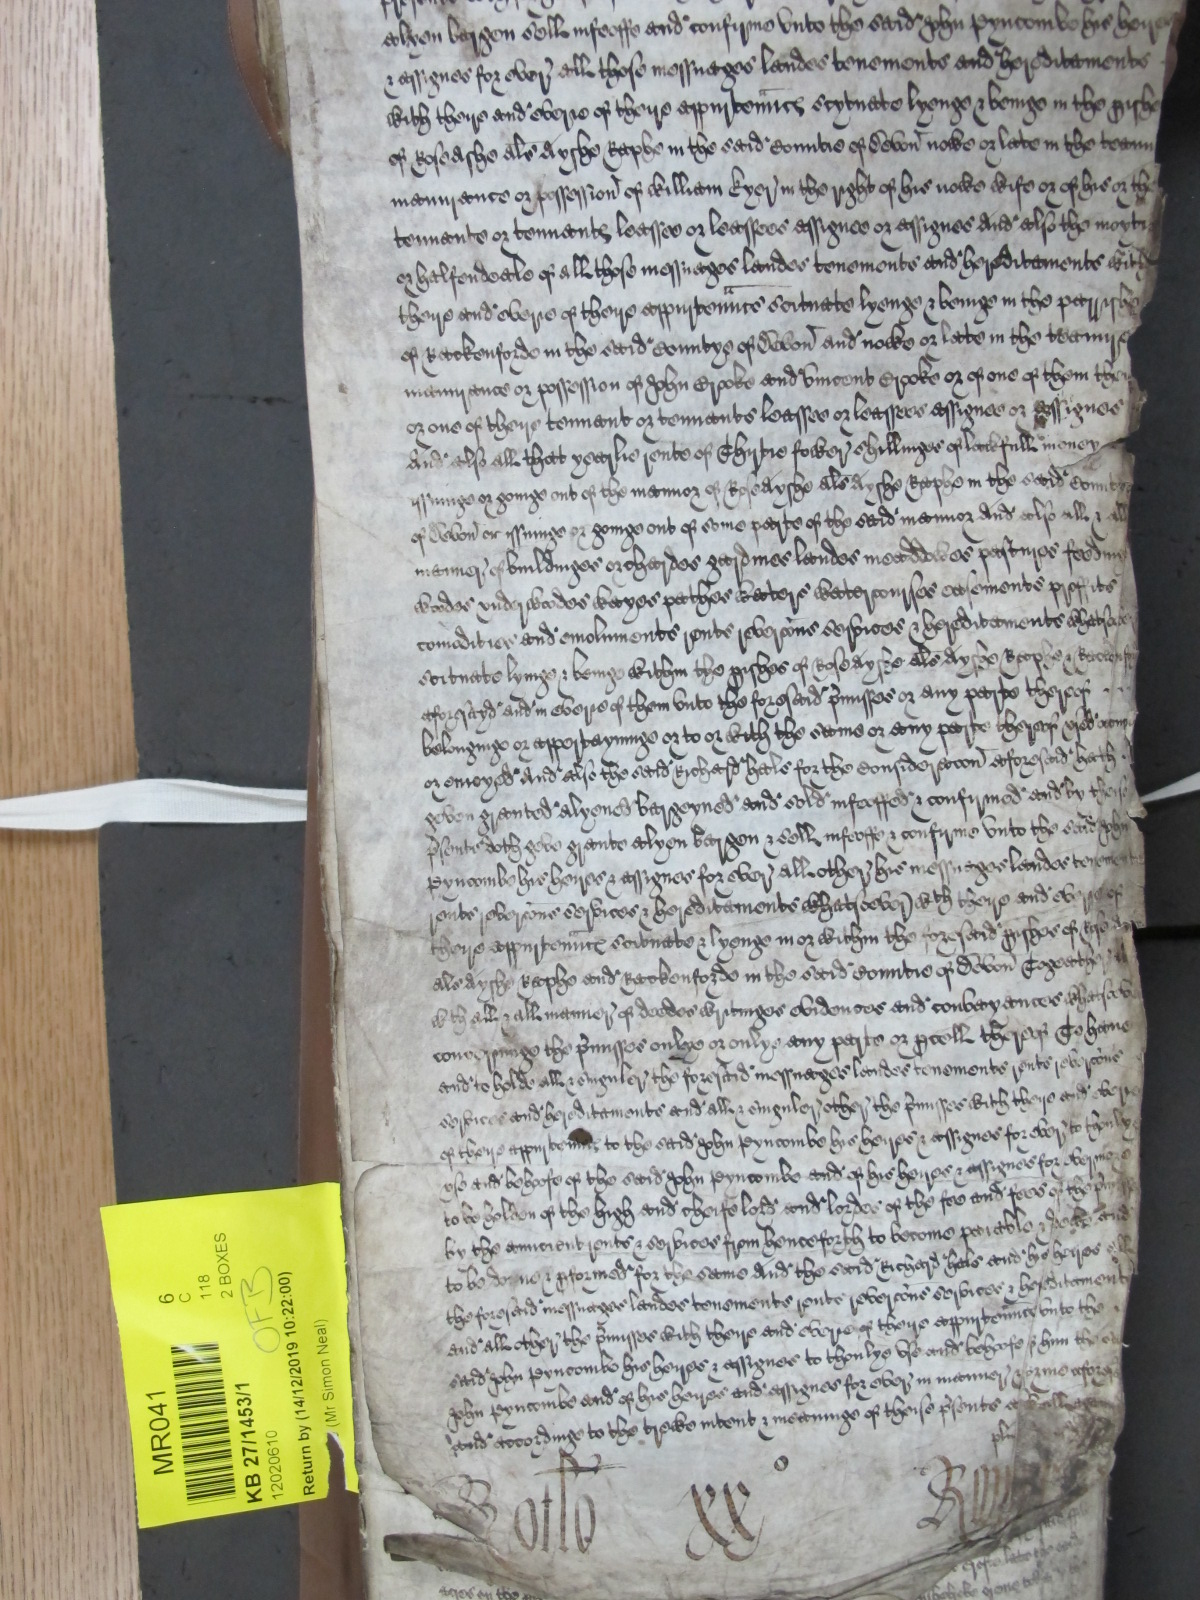 alyen bargen sell infeoffe and confirme unto the said John Pyncombe his heires
& assignes for ever all those messuages landes tenements and hereditaments
with there and everie of there appurtennces scytuate lyenge & beinge in the pishe
of Roseashe als Ayshe Raphe in the said Countie of Devon nowe or late in the tenure
mannrance or possession of William Eyer in the right of his nowe wife or of his or the
tennante or tennants leassee or leassees assignee or assignes And also the moytie
or halfendeale of all those messuages landes tenements and hereditaments with
there and everie of there appurtennces scituate lyenge & beinge in the parrishe
of Rackenforde in the said Countye of Devon and nowe or late in the teanure
mannrance or possession of John Crooke and Vincent Crooke or of one of them
or one of there tennant or tennants leassee or leassees assignee or assignes
And also all that yearlie rente of Thirtie fower shillinges of lawfull money
issuinge or goinge out of the mannor of Roseayshe als Ayshe Raphe in the said Countie
of Devon or issuinge or goinge out of some parte of the said mannor And also all &
manner of buildinges orchardes gardines landes meaddowes pastures
woodes underwoodes wayes pathes waters watercourses easements proffitts
comodities and emoluments rents revercons services & hereditaments whatsoever
scituate lyinge & beinge within the pishes of Roseayshe als Ayshe Raphe & Rackenforde
aforesayd and in everie of them unto the foresaid pmisses or any parte thereof
belonginge or appertayninge or to or with the same or any parte thereof
or enioyed And also the said Richard Hals for the Consideracon aforesaid hath
geven graunted alyened bargeyned and sold infeoffed & confirmed and by these
psents doth geve graunte alyen bargen & sell infeoffe & confirme unto the said John
Pyncombe his heires & assignes for ever all other his messuages landes tenements
rents revercons services & hereditaments whatsoever wth there and everie of
there appurtennces scituate & lyenge in or within the foresaid pishes of Roseayshe
als Ayshe Raphe and Rackenforde in the said Countie of Devon Togeather
wth all & all manner of deedes writinges evidences and conveyances whatsoever
concerninge the pmisses onlye or onlye any parte or pcell thereof To have
and to holde all & singuler the foresaid messuages landes tenements rents revercons
services and hereditaments and all & singuler other the pmisses with there and everie
of there appurtennces to the said John Pyncombe his heires & assignes for ever to thonlye
use and behoofe of the said John Pyncombe and of his heires & assignes for evermore
to be holden of the high and cheife lord and lordes of the fee and fees of the pmisses
by the auncient rents & services from henceforth to become paiable & dewe and
to be donne & pformed for the same And the said Richard Hals and his heires all
the foresaid messuages landes tenements rents revercons services & hereditaments
and all other the pmisses with there and everie of there appurtennce unto the
said John Pyncombe his heires & assignes to thonlye use and behoofe of him the said
John Pyncombe and of his heires and assignes for ever in manner & forme aforesaid
and accordinge to the trewe intent & meaninge of theise psents
Rotlo xxo
MR041
6
C
118
2 BOXES
KB 27/1453/1
OFB
12020610
Return by (14/12/2019 10:22:00)
(Mr Simon Neal)